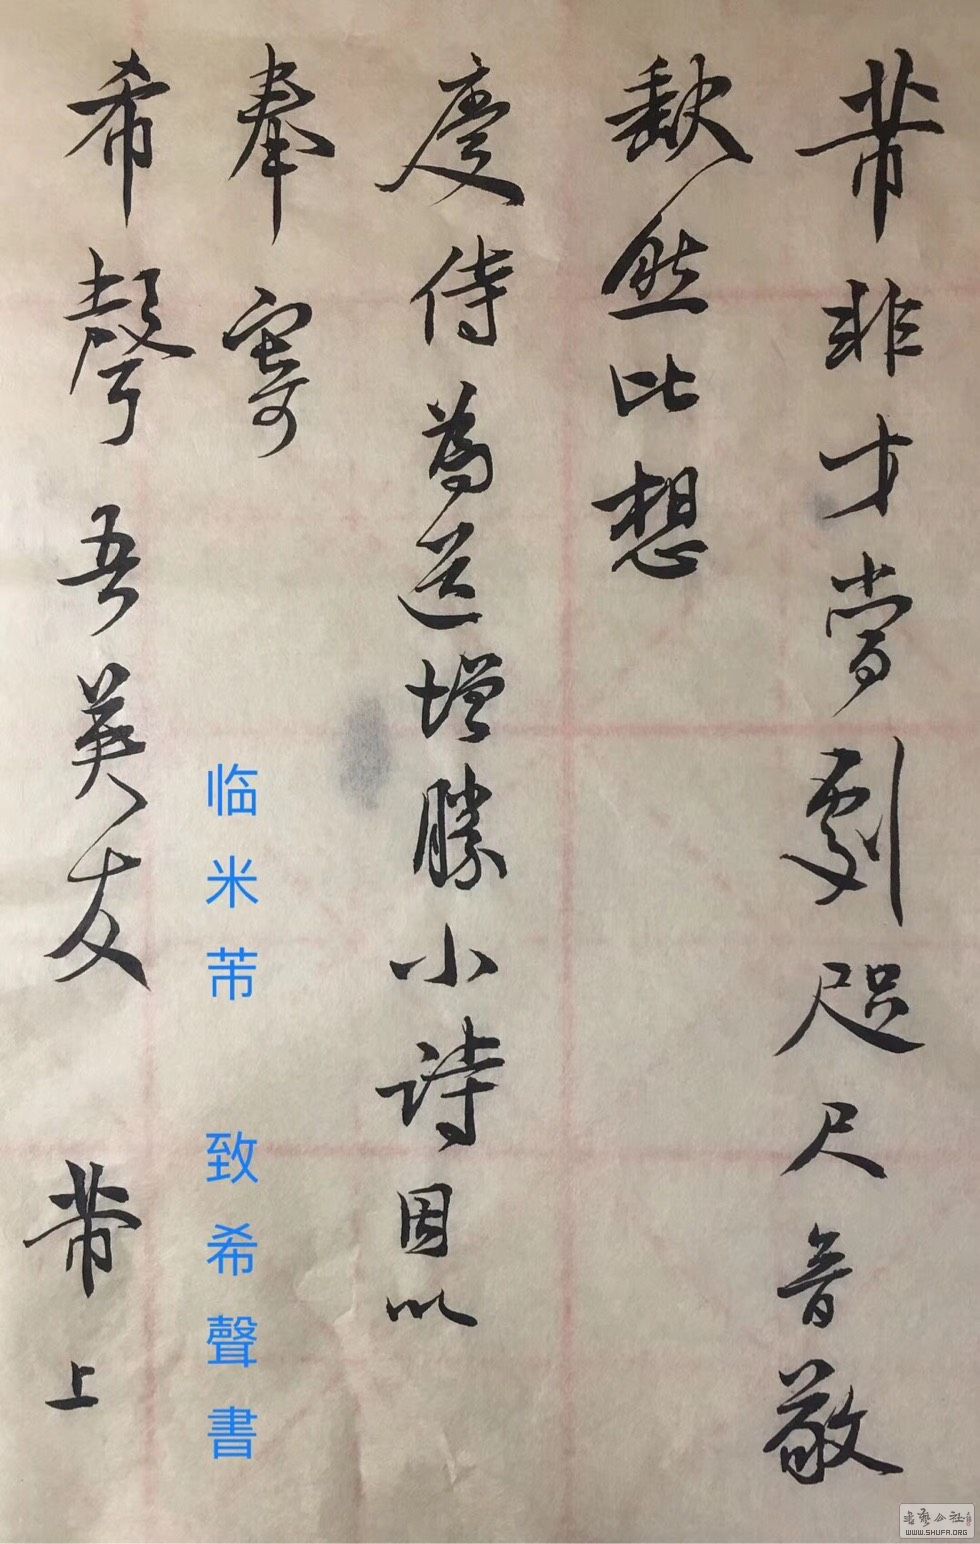 芾非才當劇咫尺音敬
缺然比想
慶侍為道增勝小詩因以
奉寄
希聲吾英友 芾上
临米芾 致希聲書
WWW.SHUFA.ORG